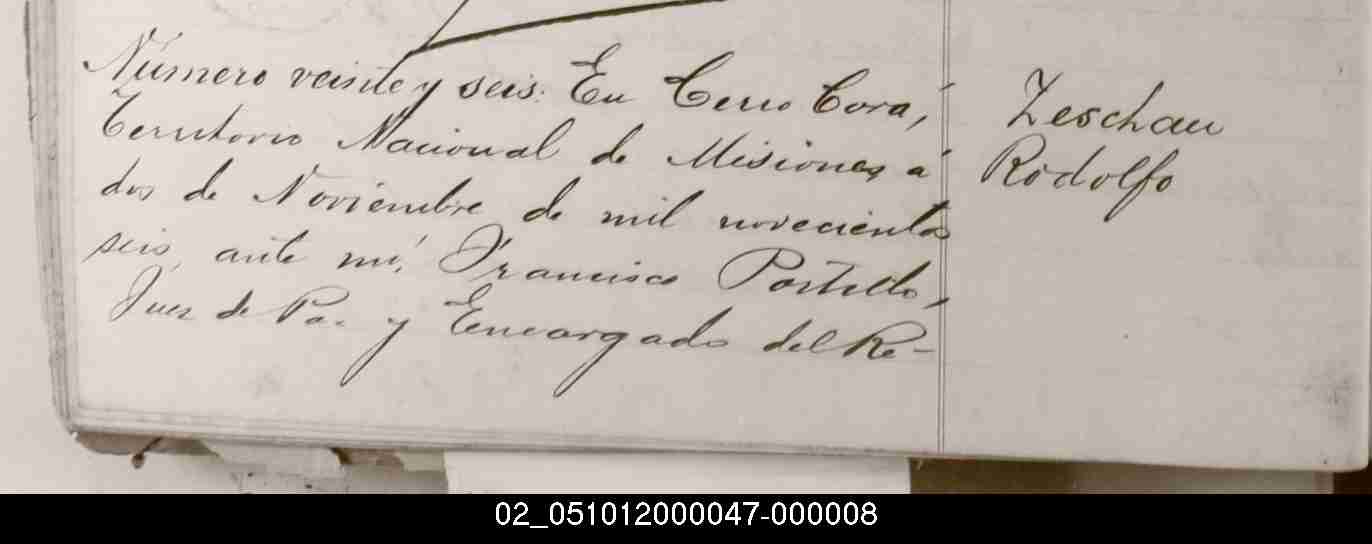 Número veinte y seis: En Cerro Corá,
Territorio Nacional de Misiones á
dos de Noviembre de mil novecientos
seis, ante mí, Francisco Portillo,
Juez de Paz y Encargado del Re-
Zeschau
Rodolfo
02_051012000047-000008